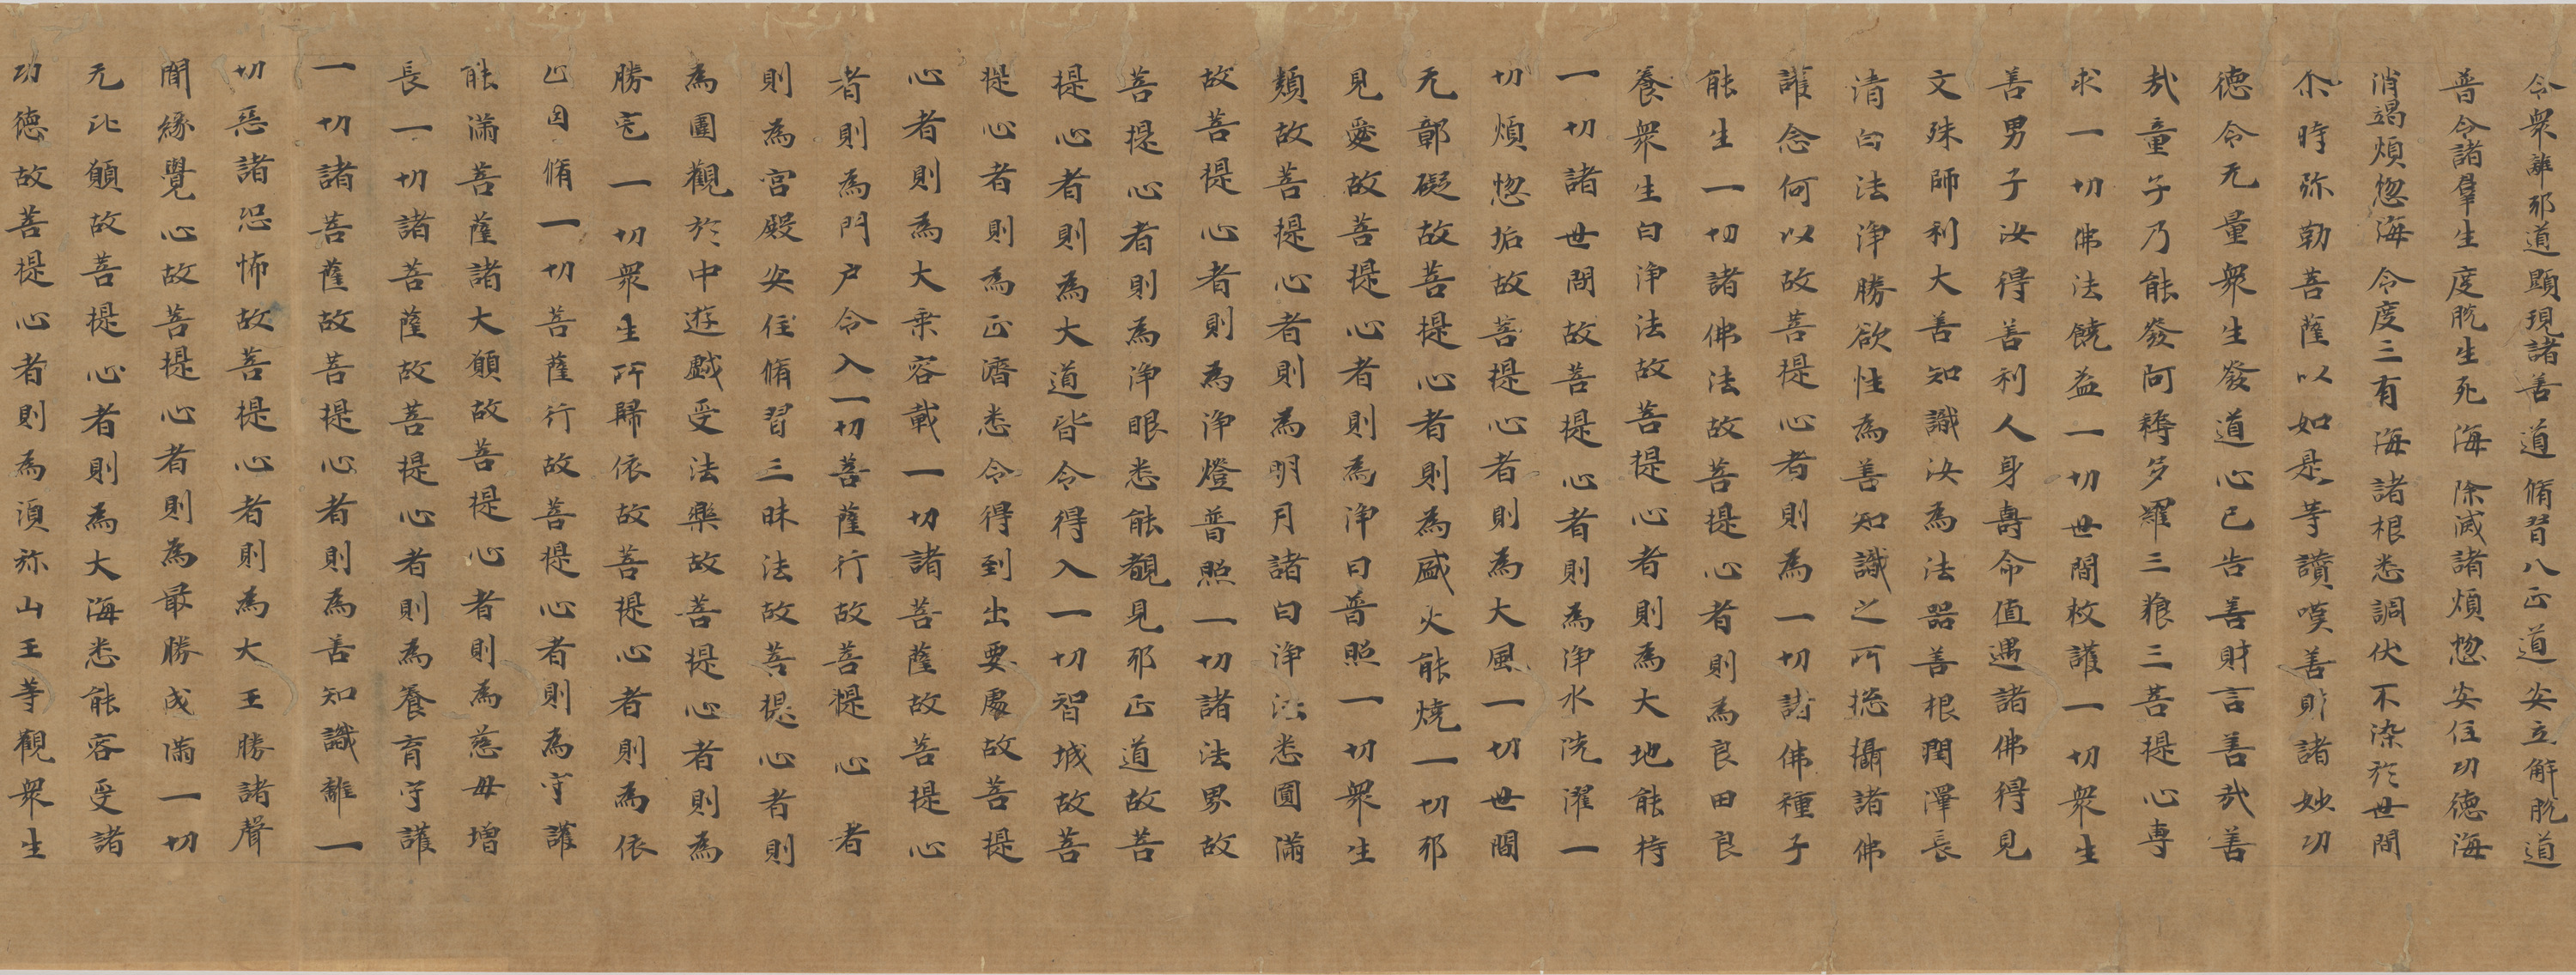 令衆離邪道顯現諸善道脩習八正道安立解脫道
普令諸羣生度脫生死海除滅諸煩惚安住功德海
消竭煩惚海令度三有海諸根悉調伏不染於世間
尒時弥勒菩薩以如是等讚嘆善財諸妙功
德令无量衆生發道心已告善財言善哉善
哉童子乃能發阿耨多羅三藐三菩提心專
求一切佛法饒益一切世間救護一切衆生
善男子汝得善利人身壽命值遇諸佛得見
文殊師利大善知識汝為法器善根潤澤長
清白法淨勝欲性為善知識之所揔攝諸佛
護念何以故菩提心者則為一切諸佛種子
能生一切諸佛法故菩提心者則為良田良
養衆生白淨法故菩提心者則為大地能持
一切諸世間故菩提心者則為淨水洗濯一
切煩惚垢故菩提心者則為大風一切世間
无鄣礙故菩提心者則為盛火能燒一切邪
見愛故菩提心者則為淨日普照一切衆生
類故菩提心者則為明月諸白淨法悉圓滿
故菩提心者則為淨燈普照一切諸法界故
菩提心者則為淨眼悉能覩見邪正道故菩
提心者則為大道皆令得入一切智城故菩
提心者則為正濟悉令得到出要處故菩提
心者則為大乘容載一切諸菩薩故菩提心
者則為門戶令入一切菩薩行故菩提心者
則為宮殿安住脩習三昧法故菩提心者則
為園觀於中遊戲受法樂故菩提心者則為
勝宅一切衆生所歸依故菩提心者則為依
止因脩一切菩薩行故菩提心者則為守護
能滿菩薩諸大願故菩提心者則為慈母增
長一切諸菩薩故菩提心者則為養育守護
一切諸菩薩故菩提心者則為善知識離一
切惡諸恐怖故菩提心者則為大王勝諸聲
聞緣覺心故菩提心者則為最勝成滿一切
无比願故菩提心者則為大海悉能容受諸
功德故菩提心者則為湏弥山王等觀衆生